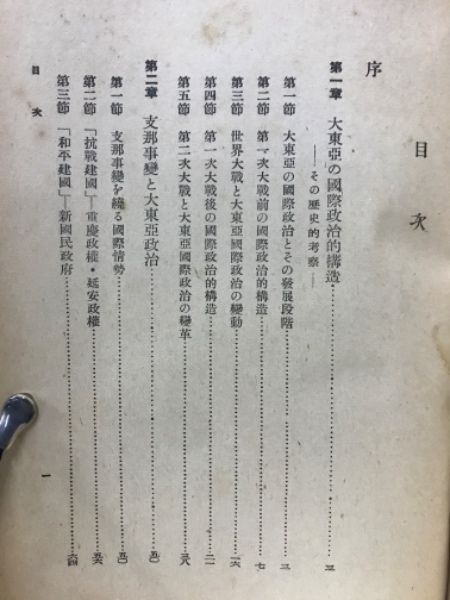 目次
序
第一章 大東亞の國際政治的構造……三
——その歴史的考察——
第一節 大東亞の國際政治とその發展段階……三
第二節 第一次大戰前の國際政治的構造……七
第三節 世界大戰と大東亞國際政治の變動……一六
第四節 第一次大戰後の國際政治的構造……二一
第五節 第二次大戰と大東亞國際政治の變革……三八
第二章 支那事變と大東亞政治……五〇
第一節 支那事變を繞る國際情勢……五〇
第二節 「抗戰建國」—重慶政權・延安政權……五六
第三節 「和平建國」—新國民政府……六四
目次
一